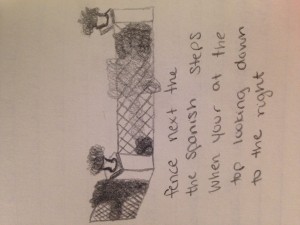 fence next the
the spanish steps
when your at the
top looking down
to the right